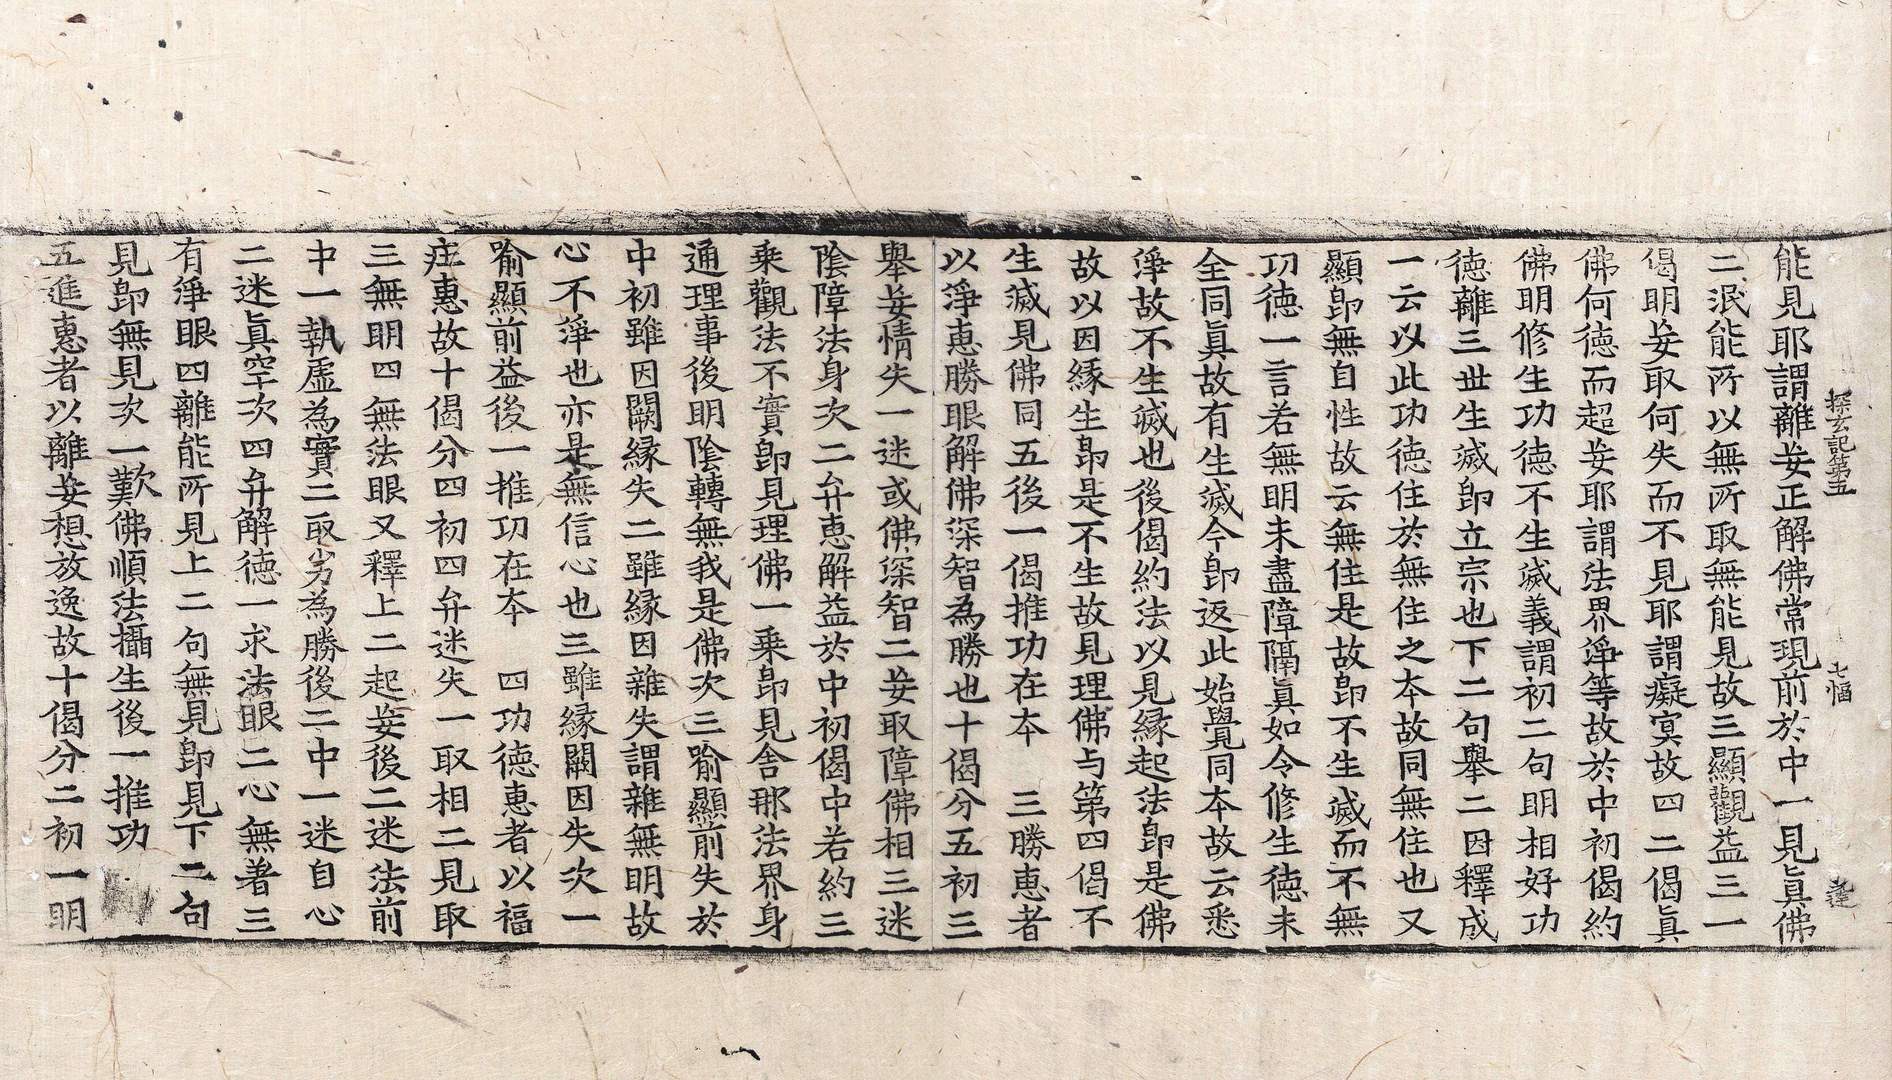 探玄記第五 七幅 蓬
能見耶謂離妄正解佛常現前於中一見眞佛
二泯能所以無所取無能見故三顯觀益三一
偈明妄取何失而不見耶謂癡㝠故四二偈眞
佛何徳而超妄耶謂法界淨等故於中初偈約
佛明修生功徳不生滅義謂初二句明相好功
徳離三世生滅即立宗也下二句舉二因釋成
一云以此功徳住於無住之夲故同無住也又
顯即無自性故云無住是故即不生滅而不無
㓛徳一言若無明未盡障隔眞如令修生徳未
全同眞故有生滅今即返此始覺同夲故云悉
淨故不生滅也後偈約法以見縁起法即是佛
故以因縁生即是不生故見理佛与第四偈不
生滅見佛同五後一偈推功在夲 三勝惠者
以淨惠勝眼解佛深智為勝也十偈分五初三
舉妄情失一迷或佛深智二妄取障佛相三迷
陰障法身次二弁惠解益於中初偈中若約三
乗觀法不實即見理佛一乗即見舎那法界身
通理事後明陰轉無我是佛次三喻顯前失於
中初雖因闕縁失二雖縁因雜失謂雜無明故
心不淨也亦是無信心也三雖縁闕因失次一
喻顯前益後一推功在夲 四功徳惠者以福
莊惠故十偈分四初四弁迷失一取相二見取
三無明四無法眼又釋上二起妄後二迷法前
中一執虛為實二取劣為勝後二中一迷自心
二迷眞空次四弁解徳一求法眼二心無著三
有淨眼四離能所見上二句無見即見下二句
見即無見次一歎佛順法攝生後一推功
五進惠者以離妄想放逸故十偈分二初一明